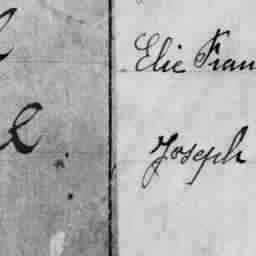 Elie Fran
Joseph